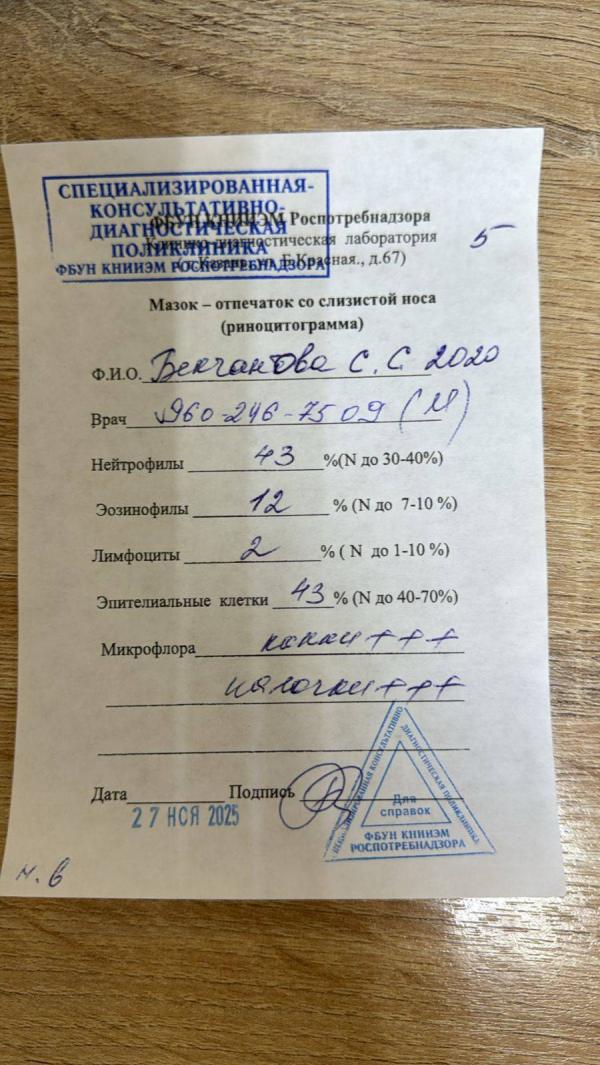 СПЕЦИАЛИЗИРОВАННАЯ-
КОНСУЛЬТАТИВНО-
ДИАГНОСТИЧЕСКАЯ
ПОЛИКЛИНИКА
ФБУН КНИИЭМ РОСПОТРЕБНАДЗОРА
ФБУН КНИИЭМ Роспотребнадзора
Клинико-диагностическая лаборатория
(г. Казань, ул. Б.Красная., д.67)
5
Мазок – отпечаток со слизистой носа
(риноцитограмма)
Ф.И.О. Бекчанова С. С. 2020
Врач 960-246-7509 (М)
Нейтрофилы 43 %(N до 30-40%)
Эозинофилы 12 % (N до 7-10 %)
Лимфоциты 2 % ( N до 1-10 %)
Эпителиальные клетки 43 % (N до 40-70%)
Микрофлора кокки +++
палочки +++
Дата 27 НОЯ 2025 Подпись
СПЕЦИАЛИЗИРОВАННАЯ КОНСУЛЬТАТИВНО
ДИАГНОСТИЧЕСКАЯ ПОЛИКЛИНИКА
Для
справок
ФБУН КНИИЭМ
РОСПОТРЕБНАДЗОРА